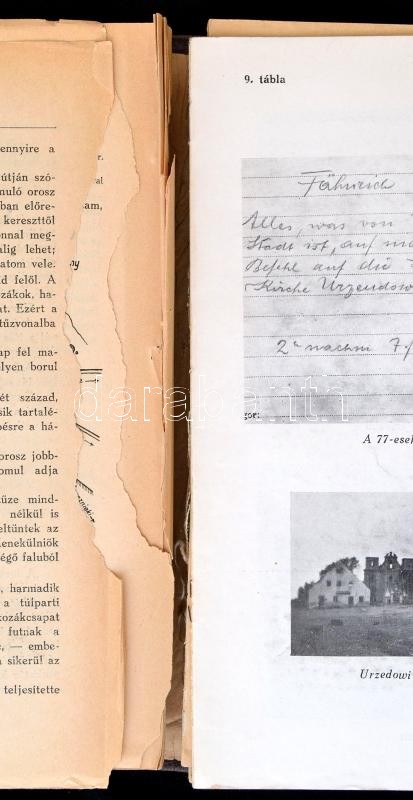 ennyire a
útján szó-
muló orosz
ban előre-
kereszttől
onnal meg-
alig lehet;
atom vele.
d felől. A
zákok, ha-
at. Ezért a
tűzvonalba
ap fel ma-
elyen borul
ét század,
sik tartalé-
pésre a há-
orosz jobb-
omul adja
tüze mind-
nélkül is
eltüntek az
nenekülniök
égő faluból
, harmadik
a túlparti
kozákcsapat
futnak a
c, — embe-
a sikerül az
teljesítette
r.
al
am,
ny
9. tábla
Fähnrich
Alles, was von
Stadt ist, auf
Befehl auf die
Kirche Urzendow
2h nachm 7/
gor:
A 77-esek
Urzedowi
darabanth